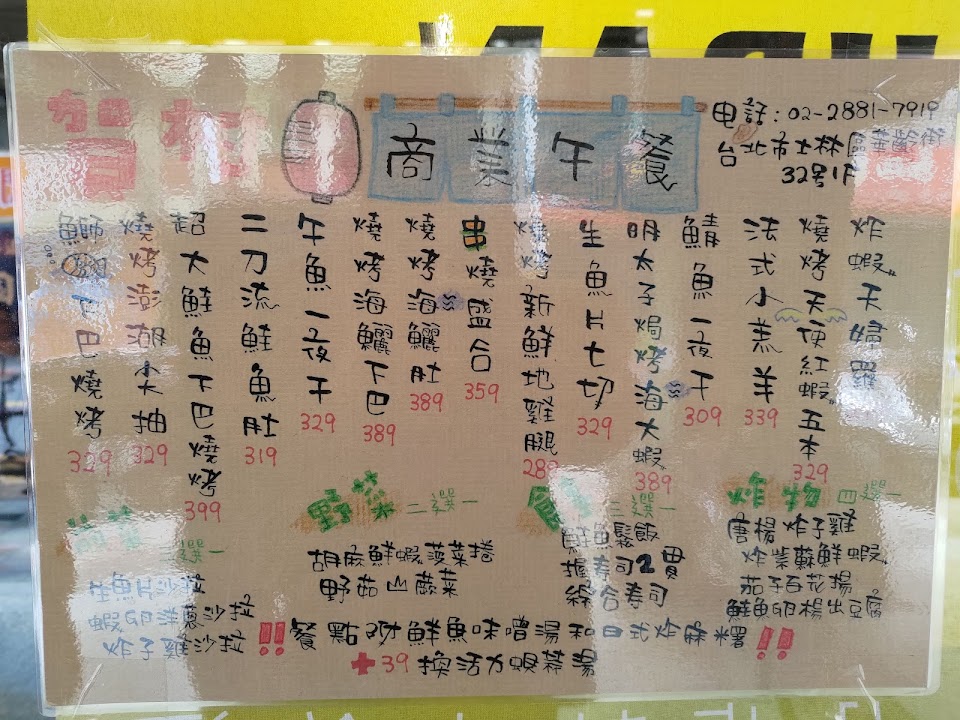 賀
商業午餐
电話：02-2881-7919
台北市士林區華齡街
32号1F
炸蝦天婦羅
燒烤天使紅蝦五本 329
法式小羔羊 339
鯖魚一夜干 309
明太子焗烤海大蝦 389
生魚片七切 329
燒烤新鮮地雞腿 288
串燒盛合 359
燒烤海鱺肚 389
燒烤海鱺下巴 389
午魚一夜干 329
二刀流鮭魚肚 319
超大鮭魚下巴燒烤 399
燒烤澎湖尖抽 329
鰤 下巴燒烤 329
炸物 四選一
唐揚炸子雞
炸紫蘇鮮蝦
茄子百花揚
鮭魚卵揚出豆腐
三選一
鮭魚鬆飯
握寿司2貫
綜合寿司
野菜 二選一
胡麻鮮蝦菠菜捲
野菇山蕨菜
選一
生魚片沙拉
蝦卵洋蔥沙拉
炸子雞沙拉
!!餐點附鮮魚味噌湯和日式炸麻糬!!
+39換活力蜆蒜湯